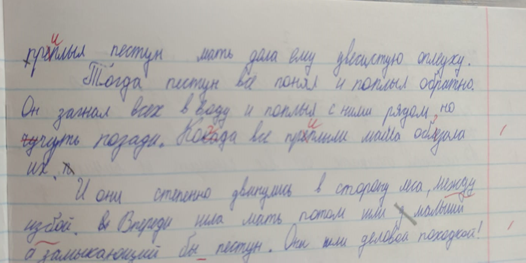 приплыл пестун мать дала ему двесистую оплеуху.
Тогда пестун всё понял и поплыл обратно.
Он загнал всех в воду и поплыл с ними рядом, но
чучуть позади. Когда все приплыли мама обязала
их.
И они степенно двинулись в сторону леса, между
избой. Впереди шла мать потом шли малыши
а замыкающий бы пестун. Они шли деловой походкой!